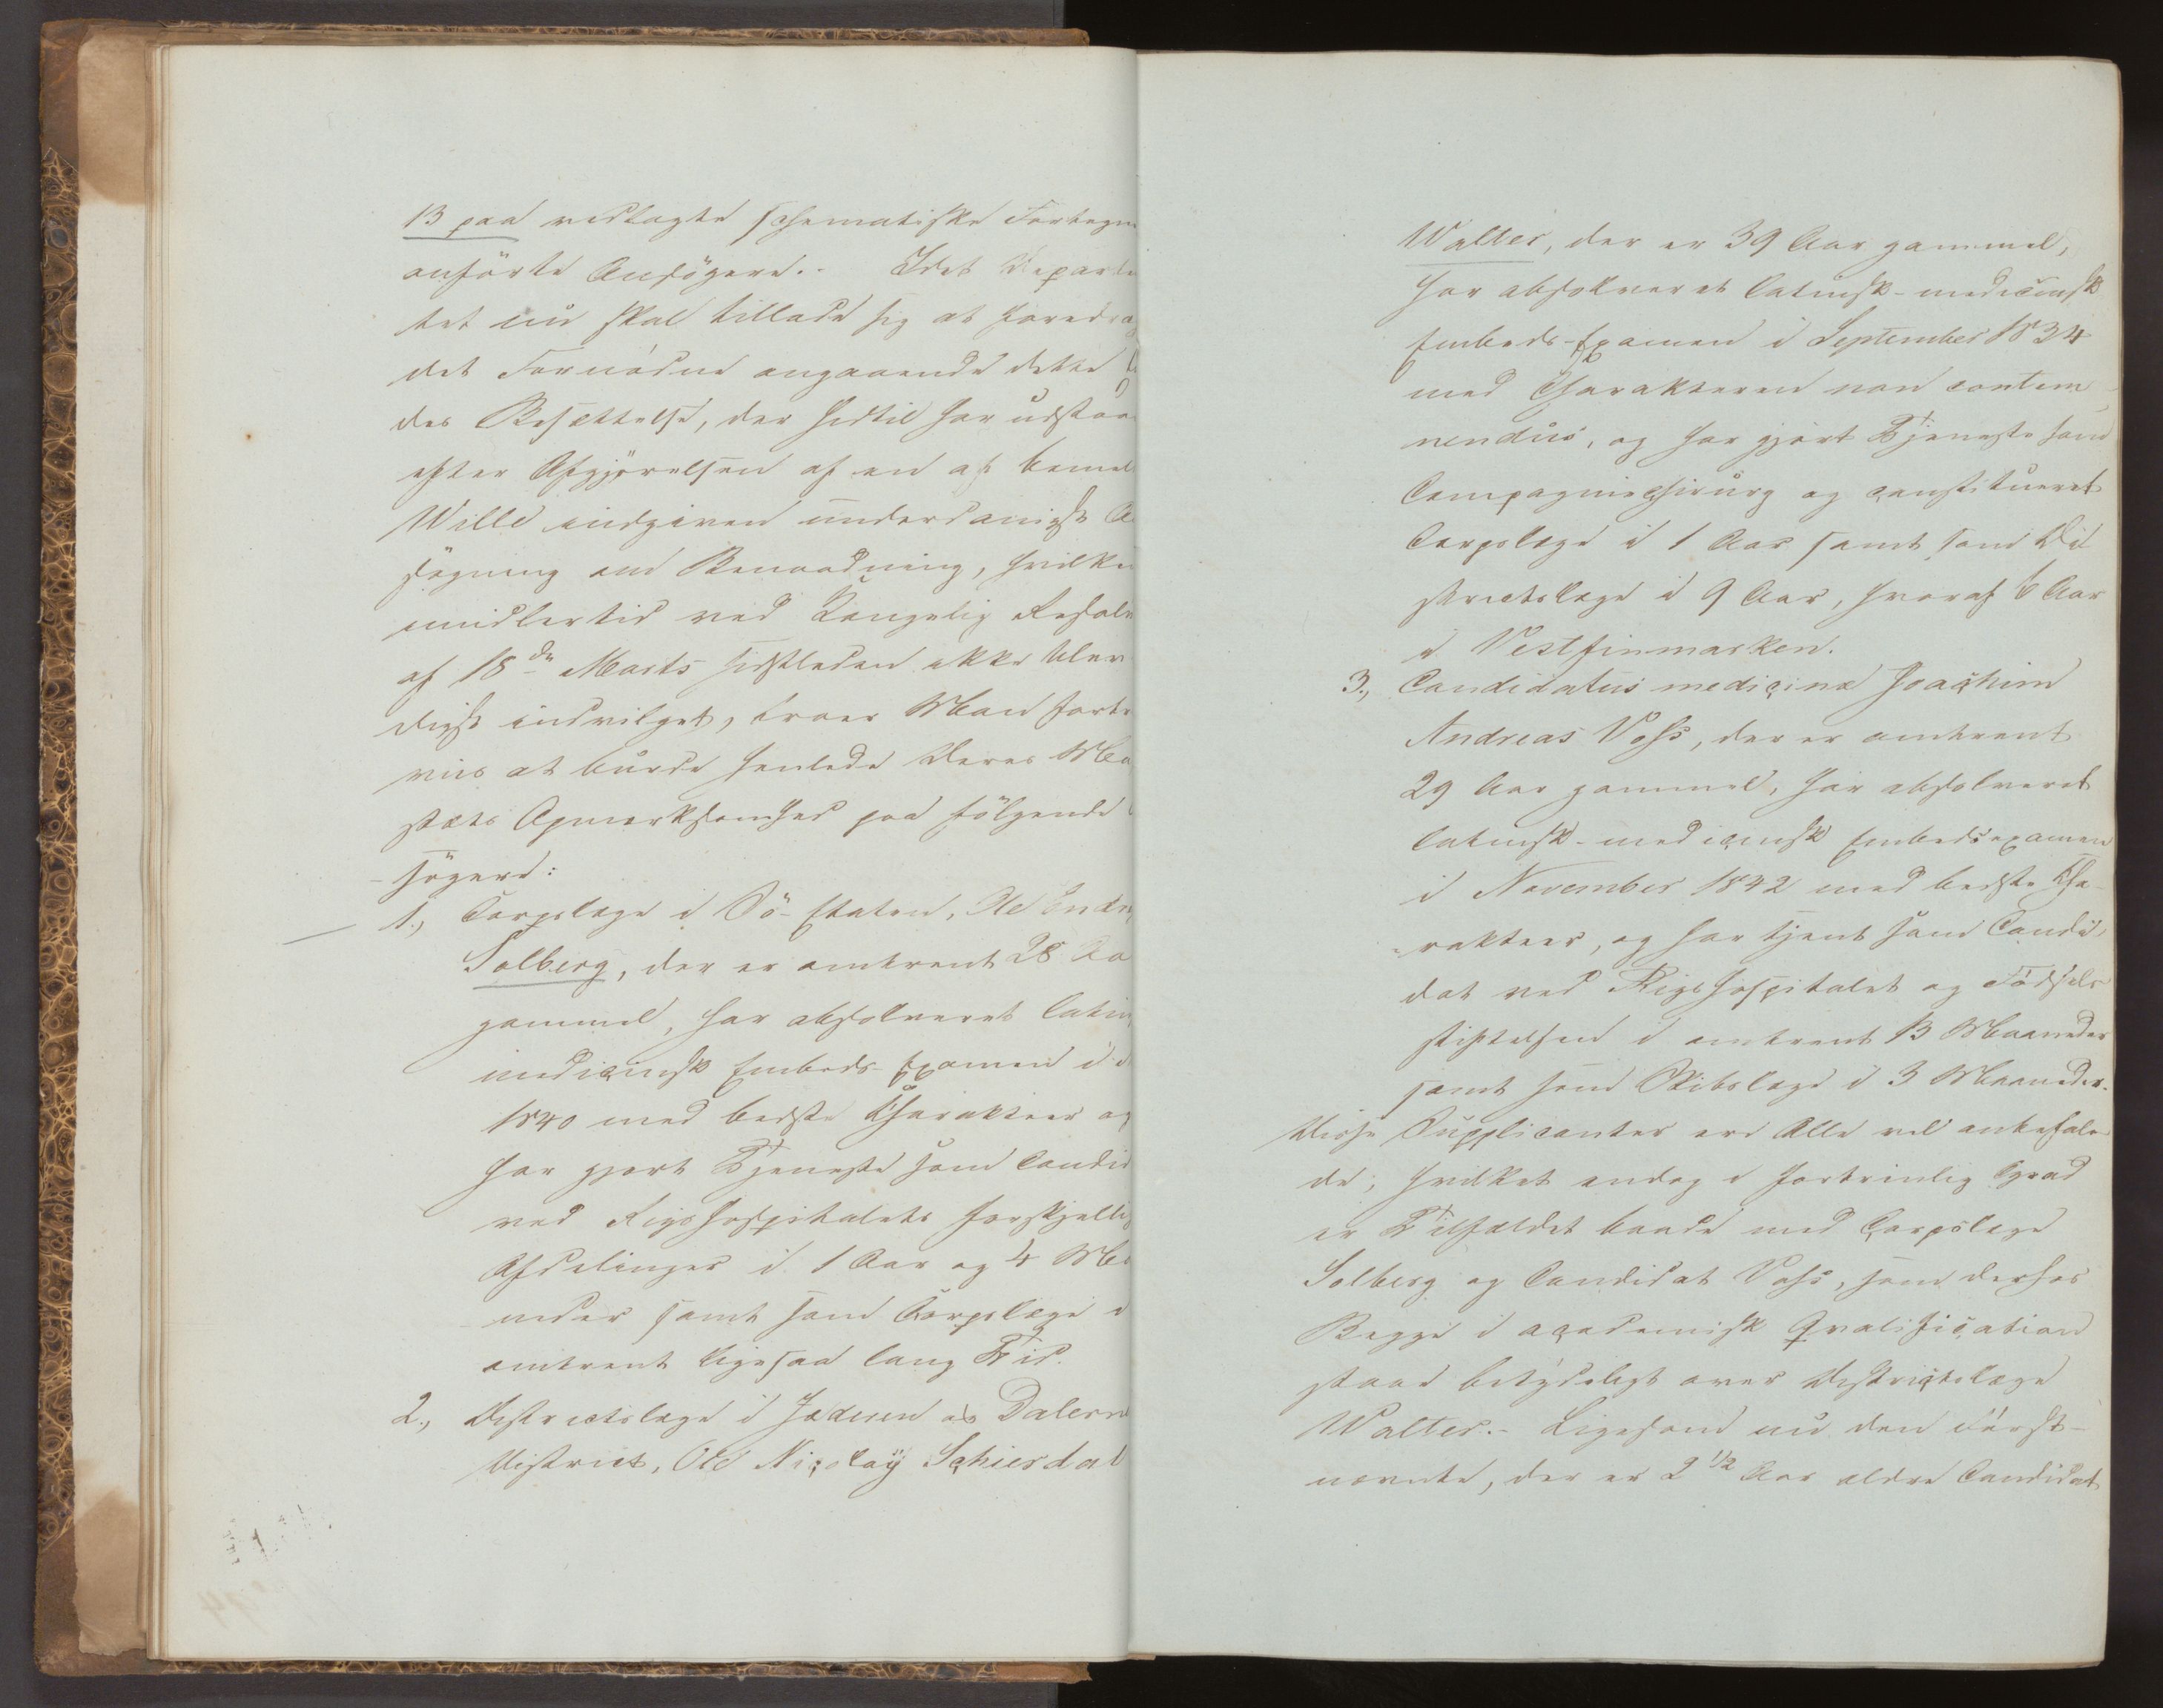 13 paa vedlagte schematiske Fortegn
anførte Ansøgere.- Idet Departe
tet nu skal tillade sig at foredra
det Fornødne angaaende dette
des Besættelse, der hidtil har udstaa
efter Afgjørelsen af en af bemel
Wille indgiven underdanigst A
søgning om Benaadning, hvilken
imidlertid ved Kongelig Resolu
af 18de Marts sidstleden ikke blev
digst indvilget, troer Man fortr
viis at burde henlede Deres Ma
stæts Opmærksomhed paa følgende
søgere:
1., Corpslæge i Sø-Etaten, Ole Endr
Solberg, der er omtrent 28 Aa
gammel, har absolveret latin
medicinsk Embeds-Examen i
1840 med bedste Charakteer og
har gjort Tjeneste som Candid
ved Rigshospitalets forskjellig
Afdelinger i 1 Aar og 4 Ma
neder samt som Corpslæge i
omtrent ligesaa lang Tid.
2., Districtslæge i Jæderen og Dalerne
District, Ole Nicolay Schierdal
Walter, der er 39 Aar gammel,
har absolveret latinsk-medicinsk
Embeds-Examen i September 1834
med Charakteren non contem
nendus, og har gjort Tjeneste som
Compagniechirurg og constitueret
Corpslæge i 1 Aar samt som Di
strictslæge i 9 Aar, hvoraf 6 Aar
i Vestfinmarken.
3., Candidatus medicinæ Joachim
Andreas Voss, der er omtrent
29 Aar gammel, har absolveret
latinsk-medicinsk Embedsexamen
i November 1842 med bedste Cha-
rakteer, og har tjent som Candi-
dat ved Rigshospitalet og Fødsels
stiftelsen i omtrent 13 Maaneder
samt som Skibslæge i 3 Maaneder.
Disse Supplicanter ere Alle vel anbefale
de, hvilket endog i fortrinlig Grad
er Tilfældet baade med Corpslæge
Solberg og Candidat Voss, som derhos
Begge i academisk Qvalification
staae betydeligt over Districtslæge
Walter.- Ligesom nu den Først-
nævnte, der er 2 1/2 Aar ældre Candidat